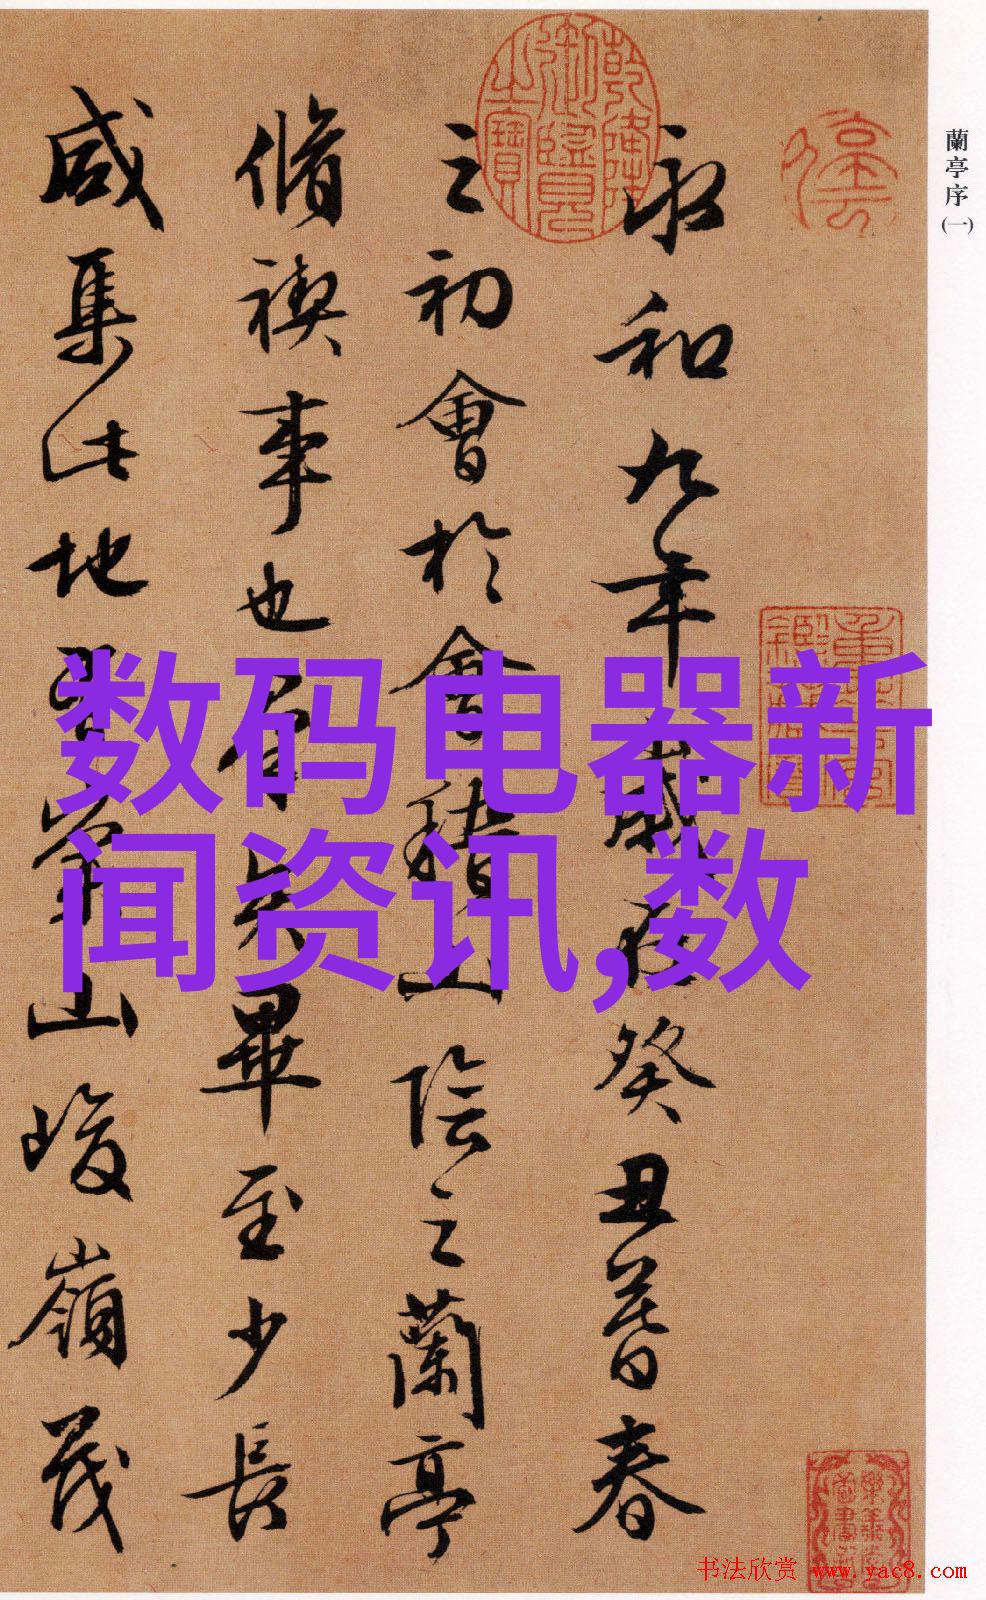 蘭亭序(一)
永和九年歲在癸丑暮春
之初會於會稽山陰之蘭亭
脩禊事也畢至少長
咸集此地有崇山峻嶺茂
乾隆御覽之寶
数码电器新
闻资讯,数
书法欣赏 www.yac8.com